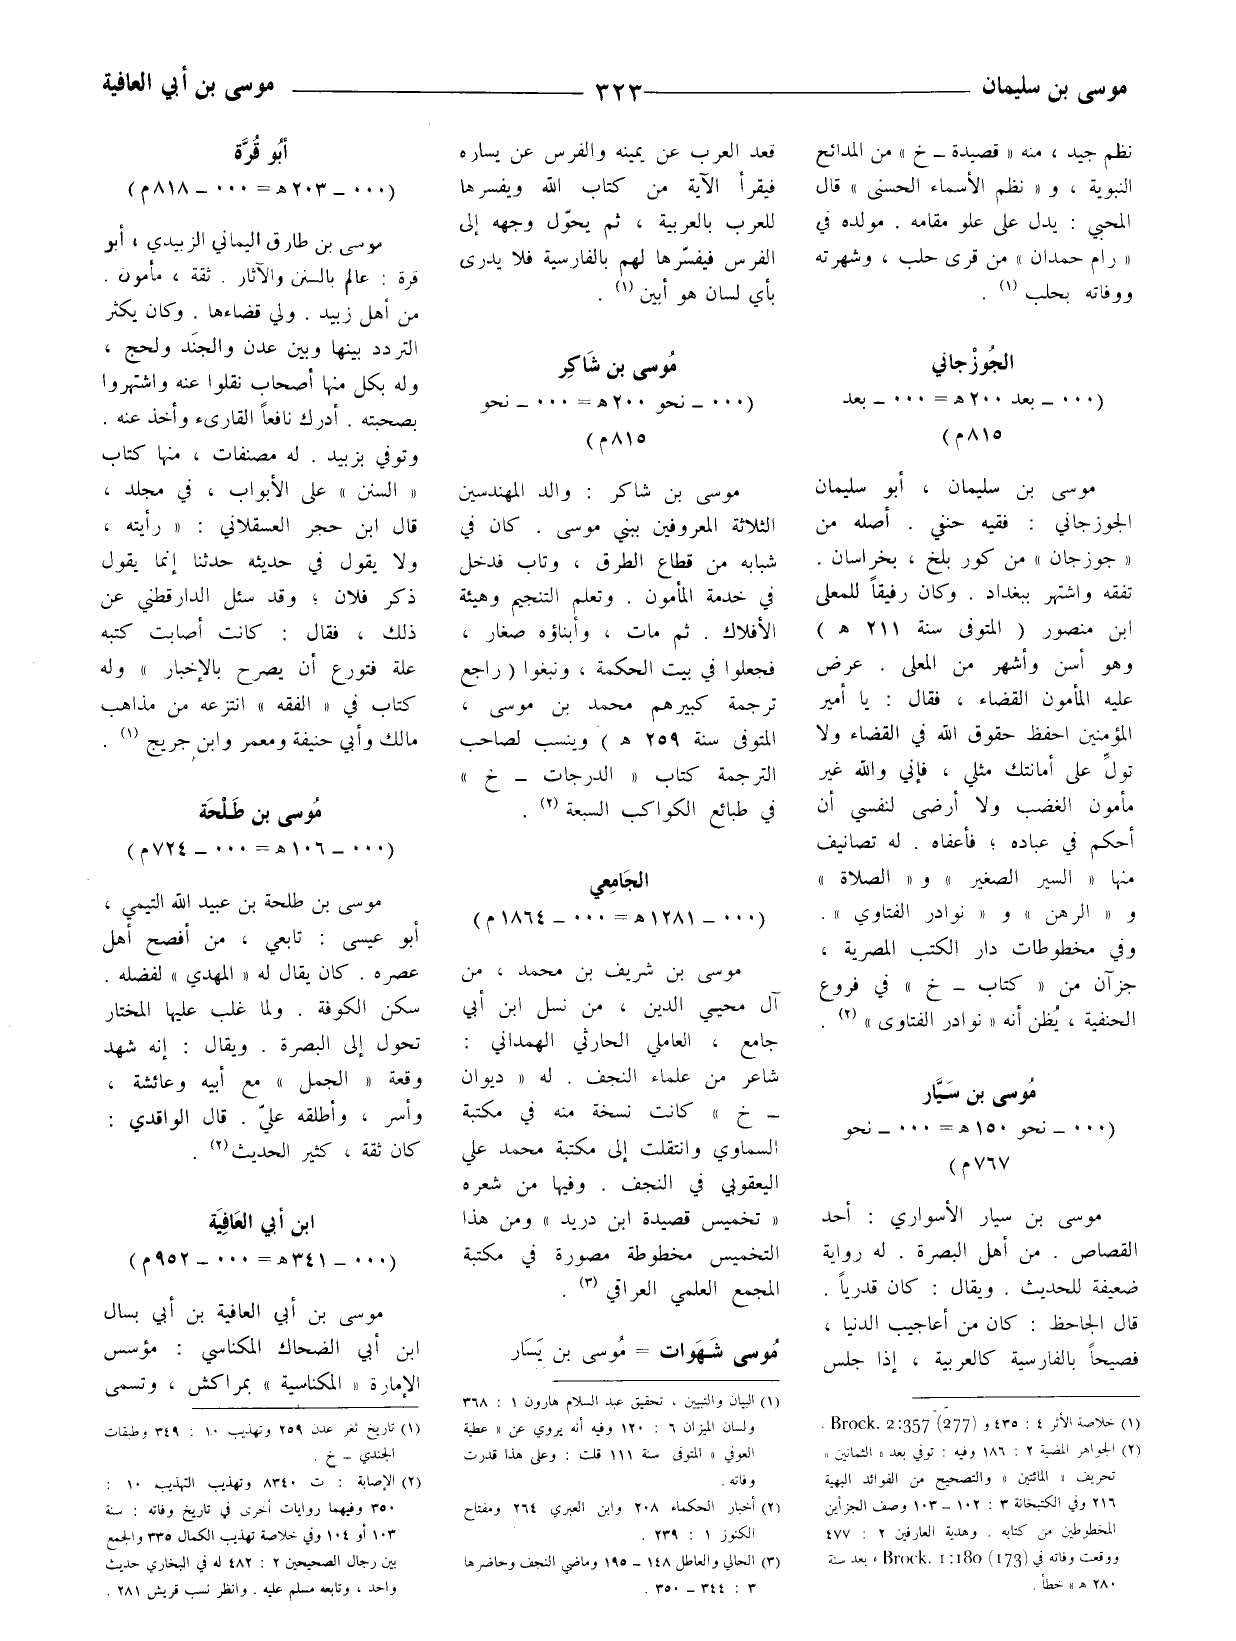 موسى بن سليمان ـــ ٣٢٣ ـــ موسى بن أبي العافية
نظم جيد ، منه « قصيدة ـ خ » من المدائح
النبوية ، و « نظم الأسماء الحسنى » قال
المحبي : يدل على علو مقامه . مولده في
« رام حمدان » من قرى حلب ، وشهرته
ووفاته بحلب (١) .
الجُوزْجاني
(٠٠٠ ـ بعد ٢٠٠ ه = ٠٠٠ ـ بعد
٨١٥ م)
موسى بن سليمان ، أبو سليمان
الجوزجاني : فقيه حنفي . أصله من
« جوزجان » من كور بلخ ، بخراسان .
تفقه واشتهر ببغداد . وكان رفيقاً للمعلى
ابن منصور ( المتوفى سنة ٢١١ ه )
وهو أسن وأشهر من المعلى . عرض
عليه المأمون القضاء ، فقال : يا أمير
المؤمنين احفظ حقوق الله في القضاء ولا
تولِّ على أمانتك مثلي ، فإني والله غير
مأمون الغضب ولا أرضى لنفسي أن
أحكم في عباده ؛ فأعفاه . له تصانيف
منها « السير الصغير » و « الصلاة »
و « الرهن » و « نوادر الفتاوي » .
وفي مخطوطات دار الكتب المصرية ،
جزآن من « كتاب ـ خ » في فروع
الحنفية ، يُظن أنه « نوادر الفتاوى » (٢) .
مُوسى بن سَيَّار
(٠٠٠ ـ نحو ١٥٠ ه = ٠٠٠ ـ نحو
٧٦٧ م)
موسى بن سيار الأسواري : أحد
القصاص . من أهل البصرة . له رواية
ضعيفة للحديث . ويقال : كان قدرياً .
قال الجاحظ : كان من أعاجيب الدنيا ،
فصيحاً بالفارسية كالعربية ، إذا جلس
(١) خلاصة الأثر ٤ : ٤٣٥ و Brock. 2:357 (277) .
(٢) الجواهر المضية ٢ : ١٨٦ وفيه : توفي بعد « الثمانين »
تحريف « المائتين » والتصحيح من الفوائد البهية
٢١٦ وفي الكتبخانة ٣ : ١٠٢ ـ ١٠٣ وصف الجزأين
المخطوطين من كتابه . وهدية العارفين ٢ : ٤٧٧
ووقعت وفاته في Brock. 1:180 (173) « بعد سنة
٢٨٠ ه » خطأ .
قعد العرب عن يمينه والفرس عن يساره
فيقرأ الآية من كتاب الله ويفسرها
للعرب بالعربية ، ثم يحوّل وجهه إلى
الفرس فيفسّرها لهم بالفارسية فلا يدرى
بأي لسان هو أبين (١) .
مُوسى بن شَاكِر
(٠٠٠ ـ نحو ٢٠٠ ه = ٠٠٠ ـ نحو
٨١٥ م)
موسى بن شاكر : والد المهندسين
الثلاثة المعروفين ببني موسى . كان في
شبابه من قطاع الطرق ، وتاب فدخل
في خدمة المأمون . وتعلم التنجيم وهيئة
الأفلاك . ثم مات ، وأبناؤه صغار ،
فجعلوا في بيت الحكمة ، ونبغوا ( راجع
ترجمة كبيرهم محمد بن موسى ،
المتوفى سنة ٢٥٩ ه ) وينسب لصاحب
الترجمة كتاب « الدرجات ـ خ »
في طبائع الكواكب السبعة (٢) .
الجَامِعي
(٠٠٠ ـ ١٢٨١ ه = ٠٠٠ ـ ١٨٦٤ م)
موسى بن شريف بن محمد ، من
آل محيي الدين ، من نسل ابن أبي
جامع ، العاملي الحارثي الهمداني :
شاعر من علماء النجف . له « ديوان
ـ خ » كانت نسخة منه في مكتبة
السماوي وانتقلت إلى مكتبة محمد علي
اليعقوبي في النجف . وفيها من شعره
« تخميس قصيدة ابن دريد » ومن هذا
التخميس مخطوطة مصورة في مكتبة
المجمع العلمي العراقي (٣) .
مُوسى شَهَوات = مُوسى بن يَسَار
(١) البيان والتبيين ، تحقيق عبد السلام هارون ١ : ٣٦٨
ولسان الميزان ٦ : ١٢٠ وفيه أنه يروي عن « عطية
العوفي » المتوفى سنة ١١١ قلت : وعلى هذا قدرت
وفاته .
(٢) أخبار الحكماء ٢٠٨ وابن العبري ٢٦٤ ومفتاح
الكنوز ١ : ٢٣٩ .
(٣) الحالي والعاطل ١٤٨ ـ ١٩٥ وماضي النجف وحاضرها
٣ : ٣٤٤ ـ ٣٥٠ .
أبُو قُرَّة
(٠٠٠ ـ ٢٠٣ ه = ٠٠٠ ـ ٨١٨ م)
موسى بن طارق اليماني الزبيدي ، أبو
قرة : عالم بالسنن والآثار . ثقة ، مأمون .
من أهل زبيد . ولي قضاءها . وكان يكثر
التردد بينها وبين عدن والجنَد ولحج ،
وله بكل منها أصحاب نقلوا عنه واشتهروا
بصحبته . أدرك نافعاً القارىء وأخذ عنه .
وتوفي بزبيد . له مصنفات ، منها كتاب
« السنن » على الأبواب ، في مجلد ،
قال ابن حجر العسقلاني : « رأيته ،
ولا يقول في حديثه حدثنا إنما يقول
ذكر فلان ؛ وقد سئل الدارقطني عن
ذلك ، فقال : كانت أصابت كتبه
علة فتورع أن يصرح بالإخبار » وله
كتاب في « الفقه » انتزعه من مذاهب
مالك وأبي حنيفة ومعمر وابن جريج (١) .
مُوسى بن طَلْحَة
(٠٠٠ ـ ١٠٦ ه = ٠٠٠ ـ ٧٢٤ م)
موسى بن طلحة بن عبيد الله التيمي ،
أبو عيسى : تابعي ، من أفصح أهل
عصره . كان يقال له « المهدي » لفضله .
سكن الكوفة . ولما غلب عليها المختار
تحول إلى البصرة . ويقال : إنه شهد
وقعة « الجمل » مع أبيه وعائشة ،
وأسر ، وأطلقه عليّ . قال الواقدي :
كان ثقة ، كثير الحديث (٢) .
ابن أبي العَافِيَة
(٠٠٠ ـ ٣٤١ ه = ٠٠٠ ـ ٩٥٢ م)
موسى بن أبي العافية بن أبي بسال
ابن أبي الضحاك المكناسي : مؤسس
الإمارة « المكناسية » بمراكش ، وتسمى
(١) تاريخ ثغر عدن ٢٥٩ وتهذيب ١٠ : ٣٤٩ وطبقات
الجندي ـ خ .
(٢) الإصابة : ت ٨٣٤٠ وتهذيب التهذيب ١٠ :
٣٥٠ وفيهما روايات أخرى في تاريخ وفاته : سنة
١٠٣ أو ١٠٤ وفي خلاصة تهذيب الكمال ٣٣٥ والجمع
بين رجال الصحيحين ٢ : ٤٨٢ له في البخاري حديث
واحد ، وتابعه مسلم عليه . وانظر نسب قريش ٢٨١ .